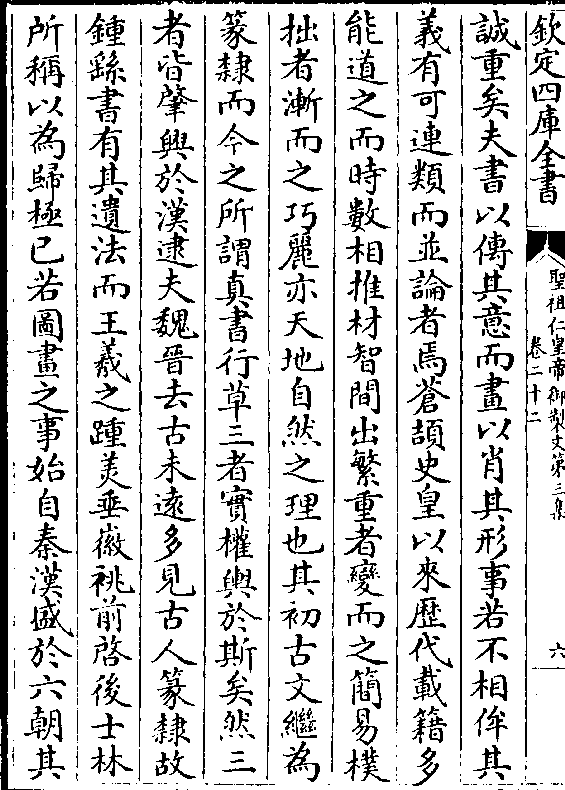 欽定四庫全書
聖祖仁皇帝御製文第三集
卷二十二
六
誠重矣夫書以傳其意而畫以肖其形事若不相侔其
義有可連類而並論者焉蒼頡史皇以來歴代載籍多
能道之而時數相推材智間出繁重者變而之簡易樸
拙者漸而之巧麗亦天地自然之理也其初古文繼為
篆隸而今之所謂真書行草三者實權輿於斯矣然三
者皆肇興於漢逮夫魏晉去古未遠多見古人篆隸故
鍾繇書有其遺法而王羲之踵美垂徽祧前啓後士林
所稱以為歸極已若圖畫之事始自秦漢盛於六朝其